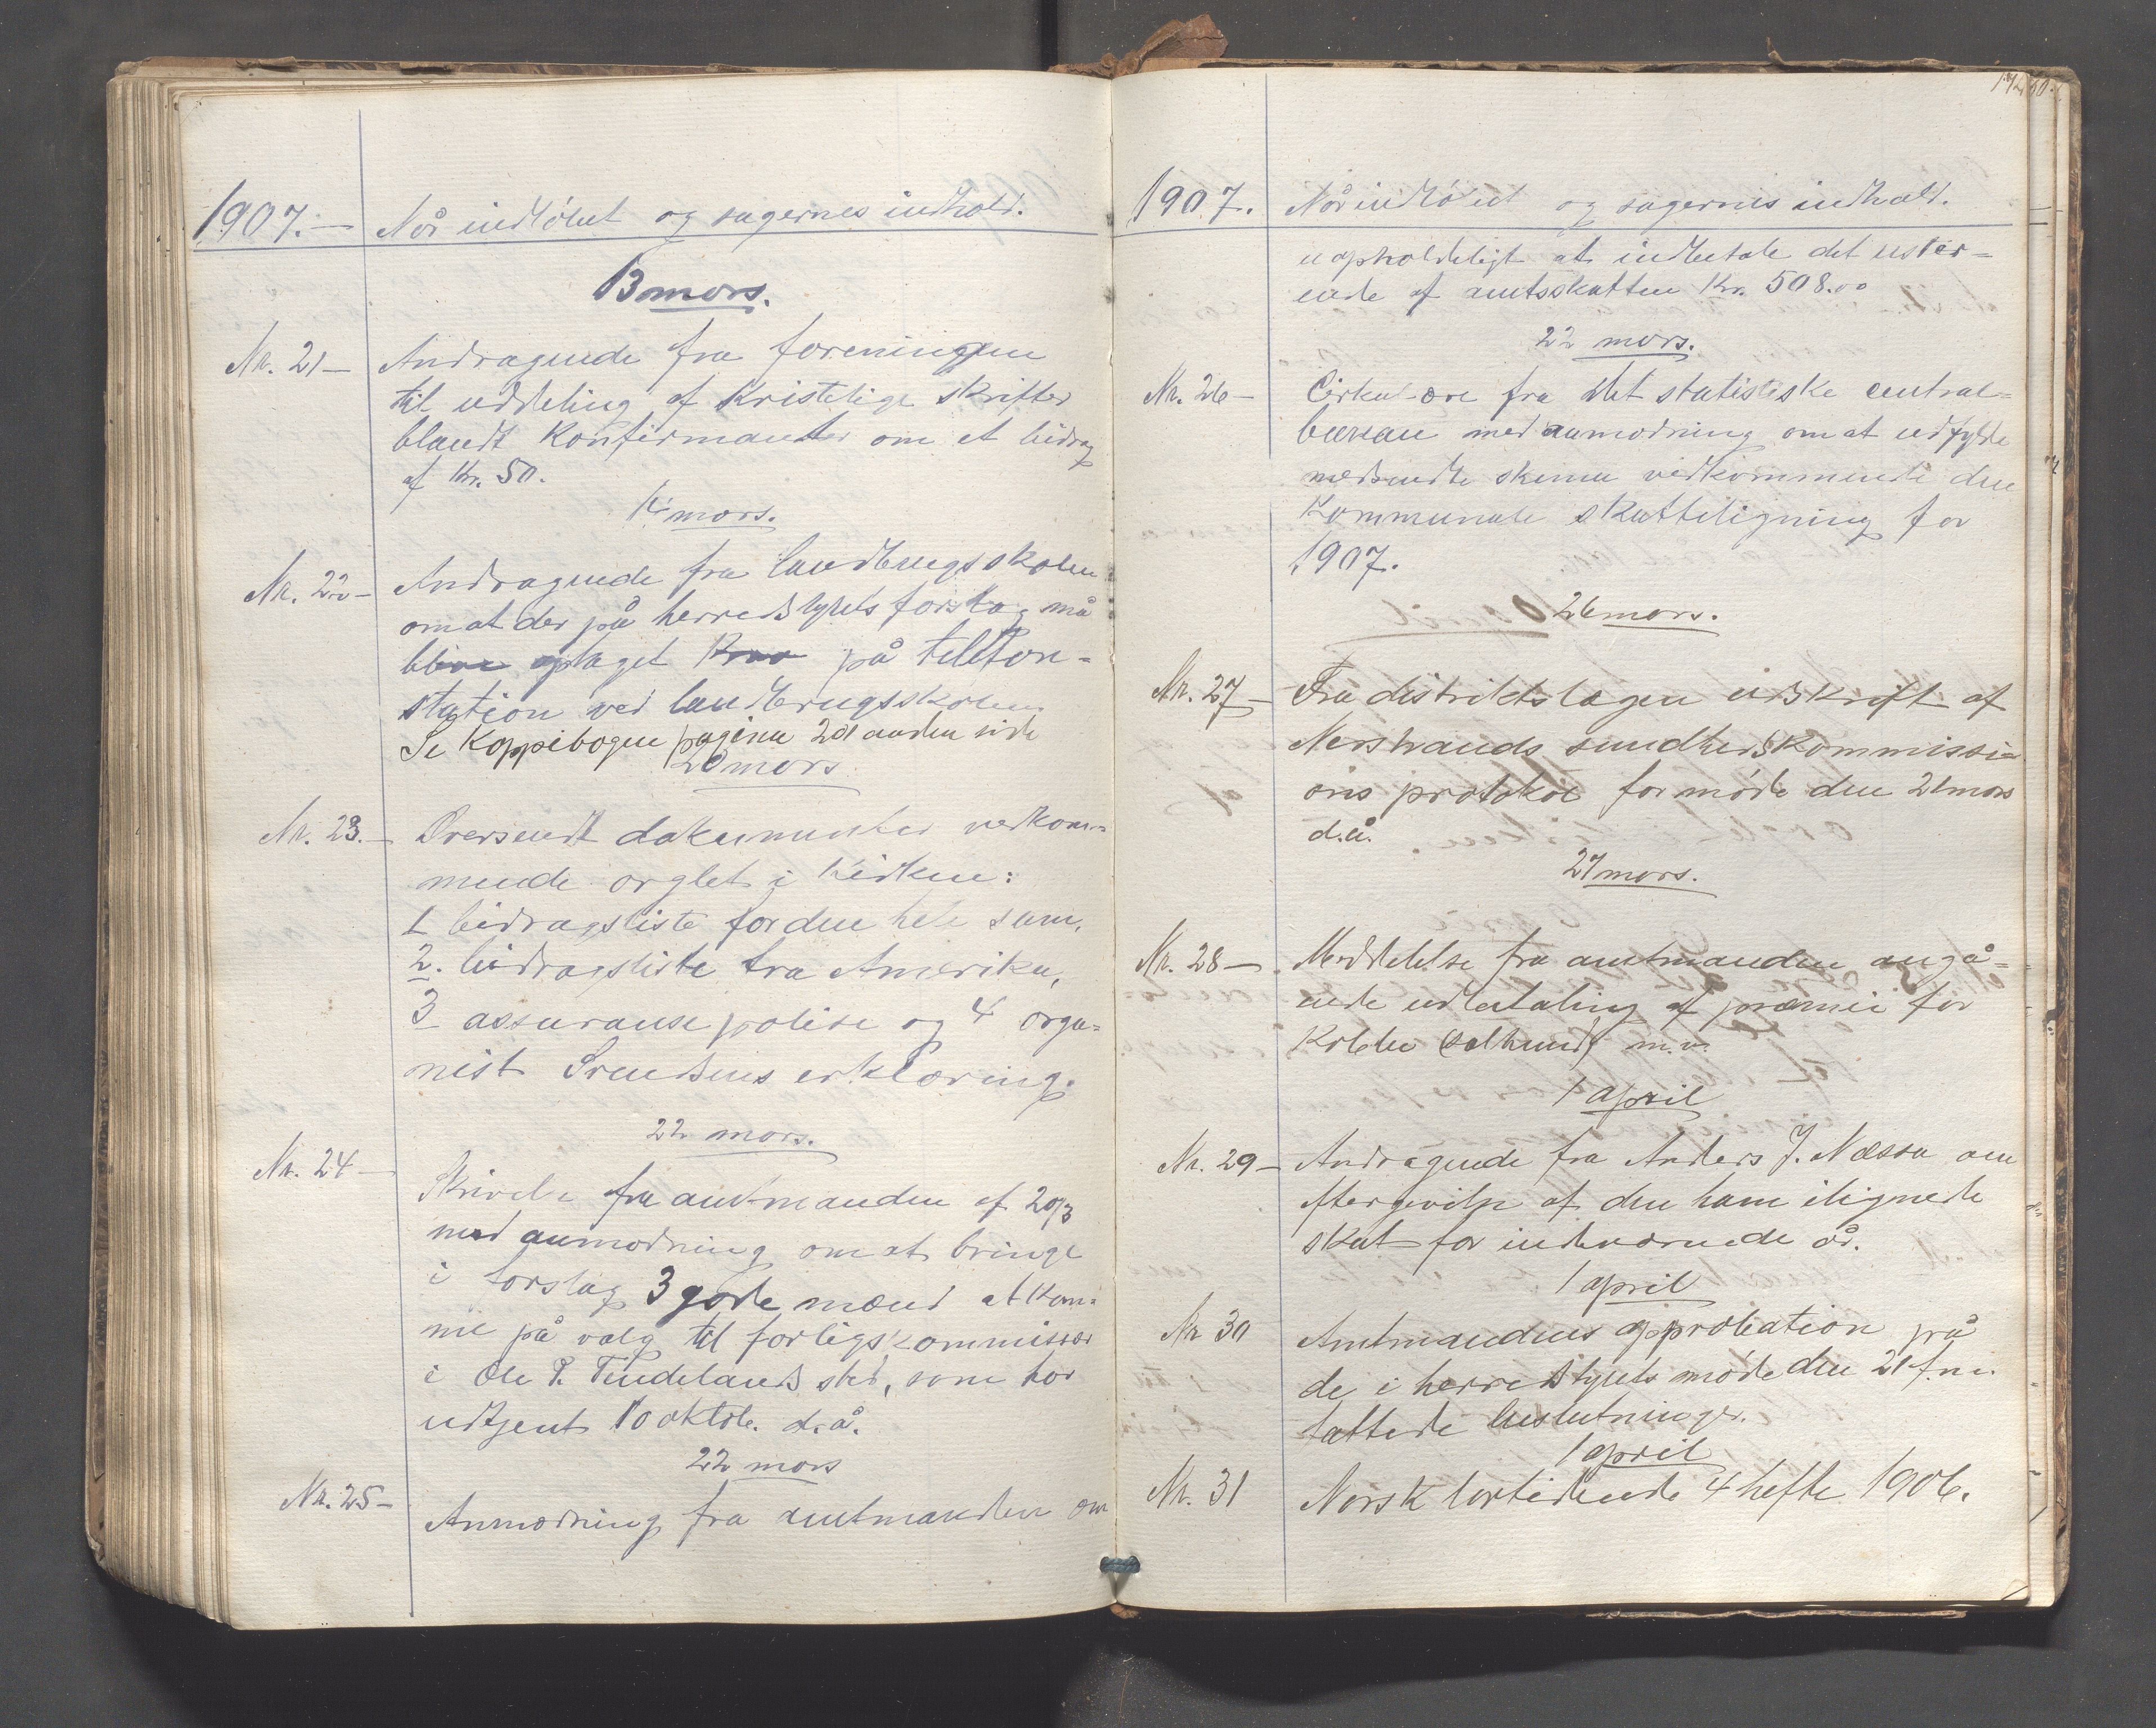 1907.— Når indløbet og sagernes indhold.
13 mars.
Nr. 21— Andragende fra foreningen
til uddeling af Kristelige skrifter
blandt Konfirmanter om et bidrag
af Kr. 50.
mars.
Nr. 22— Andragende fra landbrugsskolen
om at der på herredstyrets forslag må
blive optaget Krav på telefon=
station ved landbrugsskolen
Se Koppibogen pagina 201 anden side
20 mars
Nr. 23.— Oversendt dokumenter vedkom=
mende orglet i kirken:
1 bidragsliste for den hele sum,
2. bidragsliste fra Amerika,
3 assuranse polise og 4 orga=
nist Svendsens erklæring.
22 mars.
Nr. 24— Skrivelse fra amtmanden af 20/3
med anmodning om at bringe
i forslag 3 gode mænd at Kom=
me på valg til forligskommissær
i Ole P. Tendelands sted, som har
udtjent 10 oktob. d.å.
22 mars
Nr. 25— Anmodning fra amtmanden om
1907. Når indløbet og sagernes indhold.
uopholdeligt at indbetale det rester=
ende af amtsskatten Kr. 508.00
22 mars.
Nr. 26— Cirkulære fra det statistiske central=
bureau med anmodning om at udfylde
medsendte skema vedkommende den
Kommunale skatteligning for
1907.
26 mars.
Nr. 27— Fra distriktslægen udskrift af
Nerstrands sundhedskommissi=
ons protokol for møde den 21 mars
d.å.
27 mars.
Nr. 28— Meddelelse fra amtmanden angå=
ende udbetaling af præmie for
Kobbe (sælhund) m.v.
1 april
Nr. 29— Andragende fra Anders J. Næssa om
eftergivelse af den ham ilignede
skat for indeværende år.
1 april
Nr 30 Amtmandens approbation på
de i herredstyrets møde den 21 f.m.
fattede beslutninger.
1 april
Nr. 31 Norsk lovtidende 4 hefte 1906.